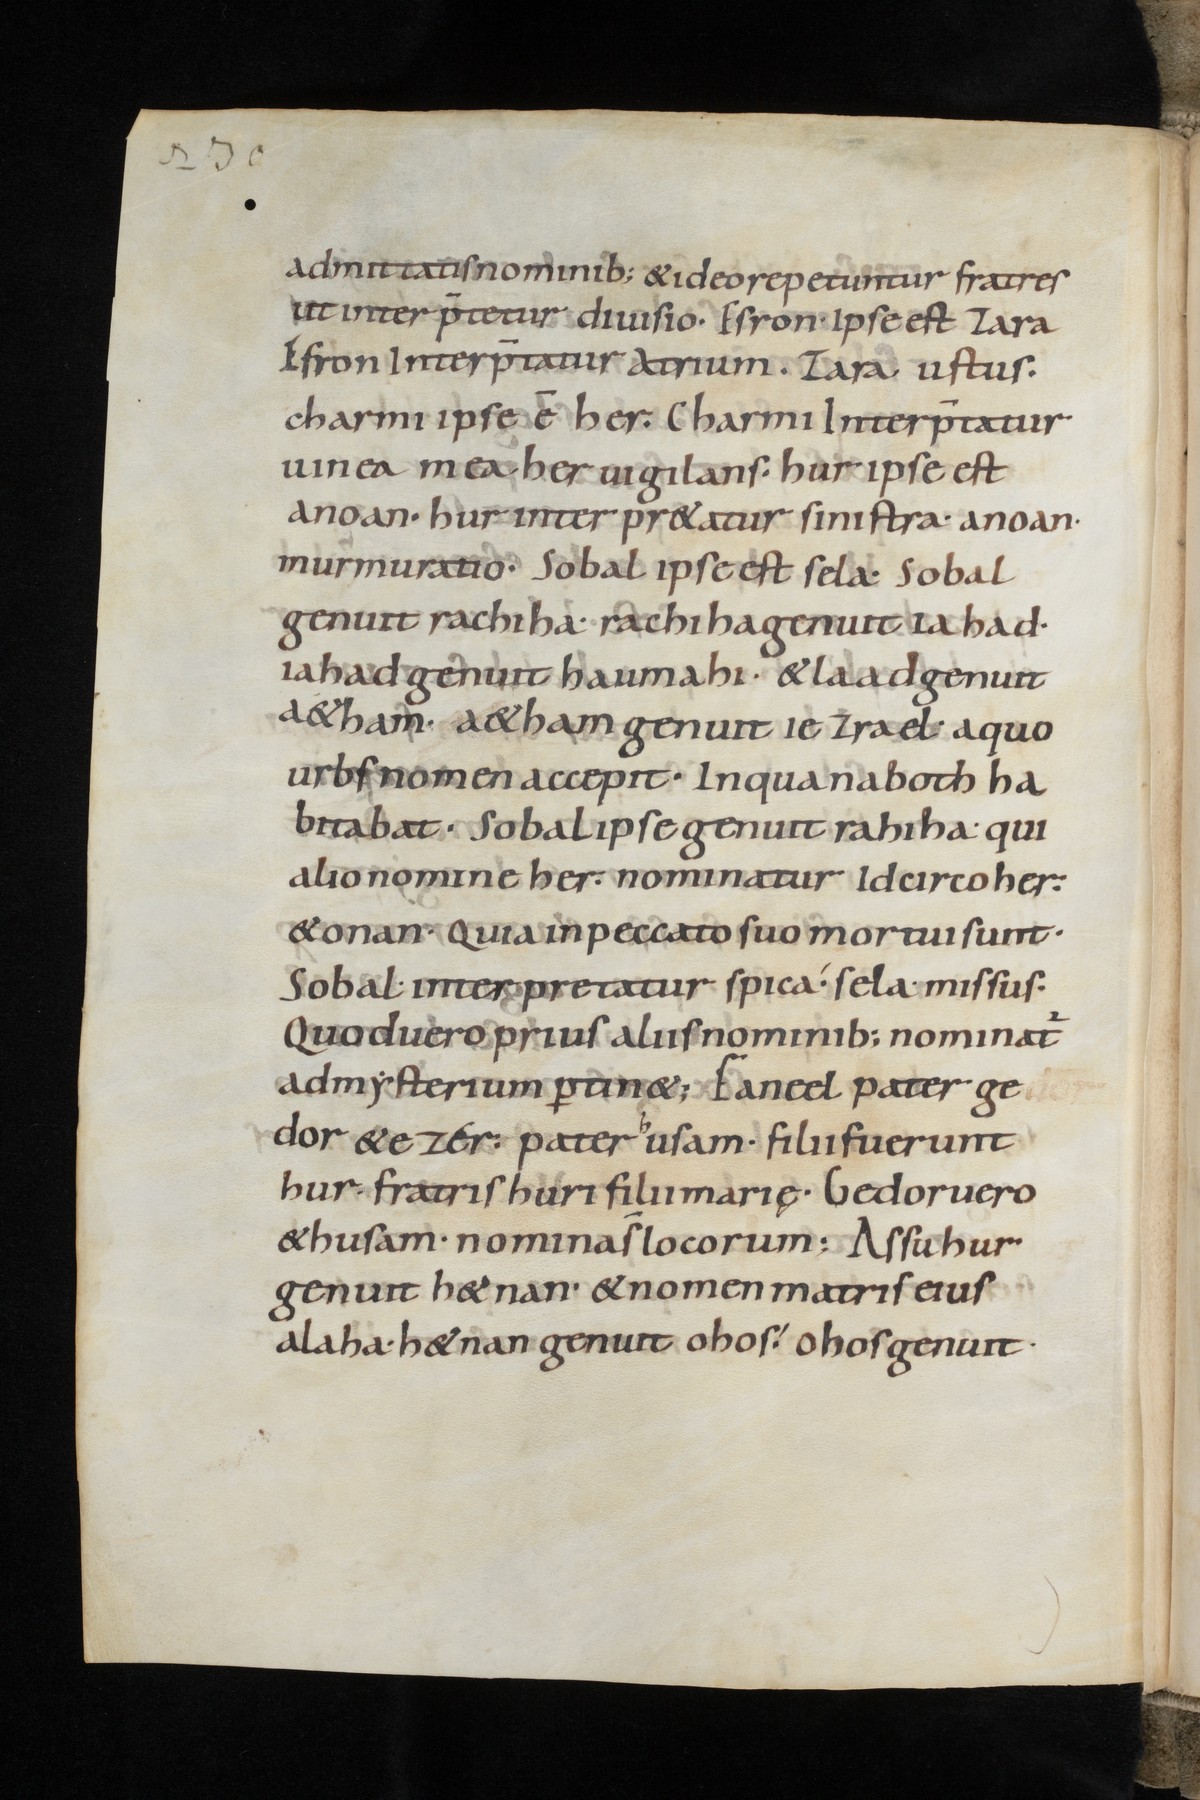 admittatis nominib; & ideo repetuntur fratres
ut inter p̄tetur diuisio. Esron. Ipse est Zara
Esron Interp̄tatur Atrium. Zara ustus.
charmi ipse ē her. Charmi Interp̄tatur
uinea mea. her uigilans. hur ipse est
anoan. hur inter pr&atur sinistra. anoan.
murmuratio. Sobal ipse est sela. Sobal
genuit rachiha. rachiha genuit iahad.
iahad genuit haumahi. & laad genuit
a&ham. a&ham genuit iezrael. a quo
urbs nomen accepit. In qua naboth ha
bitabat. Sobal ipse genuit rahiha. qui
alio nomine her. nominatur Idcirco her.
& onan. Quia in peccato suo mortui sunt.
Sobal. interpretatur spica. sela. missus.
Quod uero prius aliis nominib; nominat᷑
ad mẏsterium ꝑtin&; Faneel pater ge
dor & ezer. pater husam. filii fuerunt
hur. fratris huri filii marię. Gedor uero
& husam. nomina s̄ locorum; Assuhur
genuit h&nan. & nomen matris eius
alaha. h&nan genuit ohos. Ohos genuit.